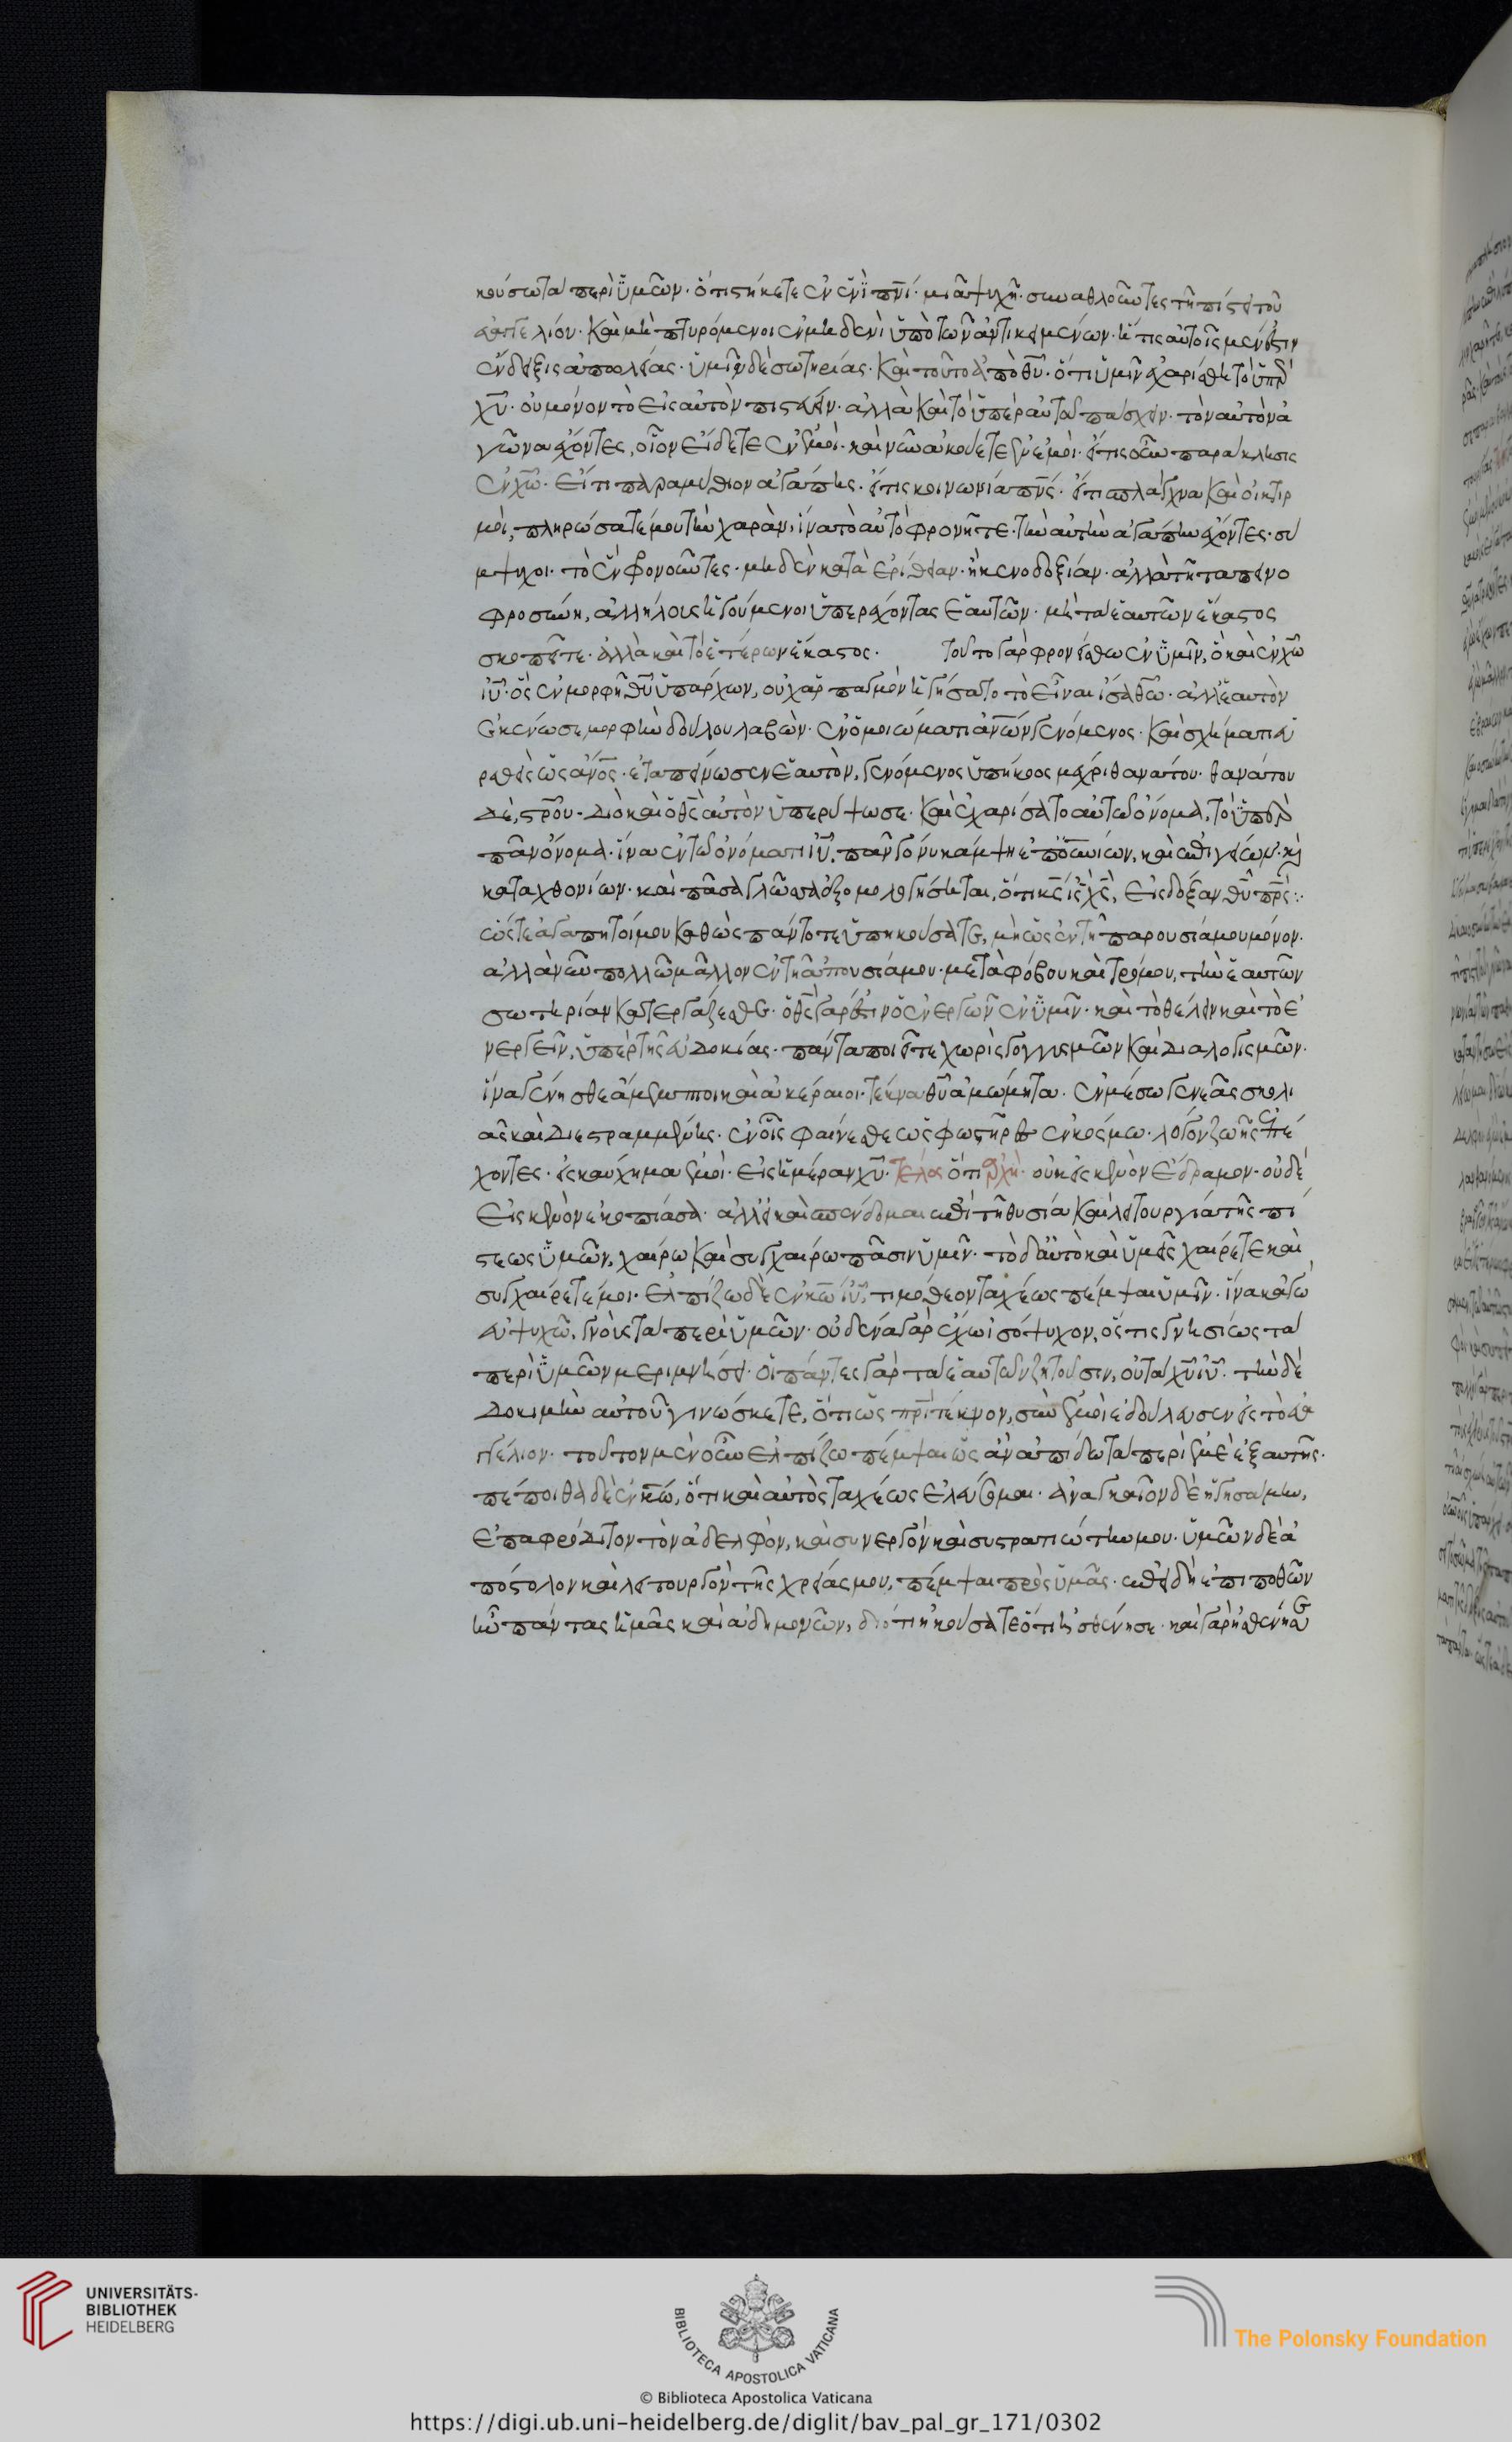 κούσω τὰ περὶ ὑμῶν· ὅτι στήκετε ἐν ἑνὶ πνι· μιᾷ ψυχῇ· συναθλοῦντες τῇ πίστει τοῦ
εὐαγγελίου· καὶ μὴ πτυρόμενοι ἐν μηδενὶ ὑπὸ τῶν ἀντικειμένων· ἥτις αὐτοῖς μέν ἐστιν
ἔνδειξις ἀπωλείας· ὑμῖν δὲ σωτηρίας· καὶ τοῦτο ἀπὸ θυ· ὅτι ὑμῖν ἐχαρίσθη τὸ ὑπὲρ
χυ· οὐ μόνον τὸ εἰς αὐτὸν πιστεύειν· ἀλλὰ καὶ τὸ ὑπὲρ αὐτοῦ πάσχειν· τὸν αὐτὸν ἀ
γῶνα ἔχοντες, οἷον εἴδετε ἐν ἐμοί· καὶ νῦν ἀκούετε ἐν ἐμοί· εἴ τις οὖν παράκλησις
ἐν χω· εἴ τι παραμύθιον ἀγάπης· εἴ τις κοινωνία πνς· εἴ τι σπλάγχνα καὶ οἰκτιρ
μοί, πληρώσατέ μου τὴν χαρὰν, ἵνα τὸ αὐτὸ φρονῆτε· τὴν αὐτὴν ἀγάπην ἔχοντες· σύ
μψυχοι· τὸ ἓν φρονοῦντες· μηδὲν κατὰ ἐρίθειαν· ἢ κενοδοξίαν· ἀλλὰ τῇ ταπεινο
φροσύνη, ἀλλήλους ἡγούμενοι ὑπερέχοντας ἑαυτῶν· μὴ τὰ ἑαυτῶν ἕκαστος
σκοπεῖτε· ἀλλὰ καὶ τὸ ἑτέρων ἕκαστος· τοῦτο γὰρ φρονείσθω ἐν ὑμῖν, ὃ καὶ ἐν χω
ιυ· ὃς ἐν μορφῇ θυ ὑπάρχων, οὐχ ἁρπαγμὸν ἡγήσατο τὸ εἶναι ἴσα θω· ἀλλ' ἑαυτὸν
ἐκένωσε, μορφὴν δούλου λαβών· ἐν ὁμοιώματι ἀνων γενόμενος· καὶ σχήματι εὑ
ρεθεὶς ὡς ἄνος· ἐταπείνωσεν ἑαυτὸν, γενόμενος ὑπήκοος μέχρι θανάτου· θανάτου
δὲ, στρου· διὸ καὶ ὁ θς αὐτὸν ὑπερύψωσε· καὶ ἐχαρίσατο αὐτῶ ὄνομα, τὸ ὑπὲρ
πᾶν ὄνομα· ἵνα ἐν τῶ ὀνόματι ιυ, πᾶν γόνυ κάμψη ἐπουνίων, καὶ ἐπιγείων· καὶ
καταχθονίων· καὶ πᾶσα γλῶσσα ἐξομολογήσηται, ὅτι κς ις χς, εἰς δόξαν θυ πρς:·
ὥστε ἀγαπητοί μου καθὼς πάντοτε ὑπηκούσατε, μὴ ὡς ἐν τῇ παρουσία μου μόνον·
ἀλλὰ νῦν πολλῶ μᾶλλον ἐν τῇ ἀπουσία μου· μετὰ φόβου καὶ τρόμου, τὴν ἑαυτῶν
σωτηρίαν κατεργάζεσθε· ὁ θς γάρ ἐστιν ὁ ἐνεργῶν ἐν ὑμῖν· καὶ τὸ θέλειν καὶ τὸ ἐ
νεργεῖν, ὑπὲρ τῆς εὐδοκίας· πάντα ποιεῖτε χωρὶς γογγυσμῶν καὶ διαλογισμῶν·
ἵνα γένησθε ἄμεμπτοι καὶ ἀκέραιοι· τέκνα θυ ἀμώμητα· ἐν μέσω γενεᾶς σκολι
ᾶς καὶ διεστραμμένης· ἐν οἷς φαίνεσθε ὡς φωστῆρες ἐν κόσμω· λόγον ζωῆς ἐπέ
χοντες· εἰς καύχημα ἐμοί· εἰς ἡμέραν χυ· τέλος ὅτι ἀρχή· οὐκ εἰς κενὸν ἔδραμον· οὐδὲ
εἰς κενὸν ἐκοπίασα· ἀλλ' εἰ καὶ σπένδομαι ἐπὶ τῇ θυσία καὶ λειτουργία τῆς πί
στεως ὑμῶν, χαίρω καὶ συγχαίρω πᾶσιν ὑμῖν· τὸ δ' αὐτὸ καὶ ὑμεῖς χαίρετε καὶ
συγχαίρετέ μοι· ἐλπίζω δὲ ἐν κω ιυ, τιμόθεον ταχέως πέμψαι ὑμῖν· ἵνα κἀγὼ
εὐψυχῶ, γνοὺς τὰ περὶ ὑμῶν· οὐδένα γὰρ ἔχω ἰσόψυχον, ὅστις γνησίως τὰ
περὶ ὑμῶν μεριμνήσει· οἱ πάντες γὰρ τὰ ἑαυτῶν ζητοῦσιν, οὐ τὰ χυ ιυ· τὴν δὲ
δοκιμὴν αὐτοῦ γινώσκετε, ὅτι ὡς πρι τέκνον, σὺν ἐμοὶ ἐδούλευσεν εἰς τὸ εὐα
γγέλιον· τοῦτον μὲν οὖν ἐλπίζω πέμψαι ὡς ἂν ἀπίδω τὰ περὶ ἐμὲ ἐξαυτῆς·
πέποιθα δὲ ἐν κω, ὅτι καὶ αὐτὸς ταχέως ἐλεύσομαι· ἀναγκαῖον δὲ ἡγησάμην,
ἐπαφρόδιτον τὸν ἀδελφὸν, καὶ συνεργὸν καὶ συστρατιώτην μου· ὑμῶν δὲ ἀ
πόστολον καὶ λειτουργὸν τῆς χρείας μου, πέμψαι πρὸς ὑμᾶς· ἐπειδὴ ἐπιποθῶν
ἦν πάντας ὑμᾶς καὶ ἀδημονῶν, διότι ἠκούσατε ὅτι ἠσθένησε· καὶ γὰρ ἠσθένησε
UNIVERSITÄTS-
BIBLIOTHEK
HEIDELBERG
BIBLIOTECA APOSTOLICA VATICANA
The Polonsky Foundation
© Biblioteca Apostolica Vaticana
https://digi.ub.uni-heidelberg.de/diglit/bav_pal_gr_171/0302